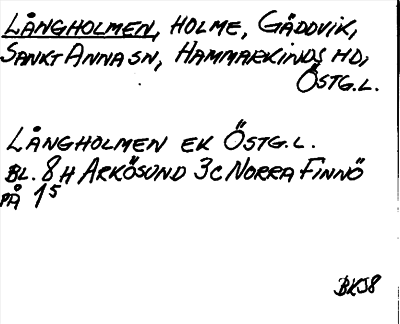 LÅNGHOLMEN, HOLME, GÄDDVIK,
SANKT ANNA SN, HAMMARKINDS HD,
ÖSTG.L.
LÅNGHOLMEN EK ÖSTG.L.
BL. 8H ARKÖSUND 3C NORRA FINNÖ
PÅ 1⁵
BKJ8